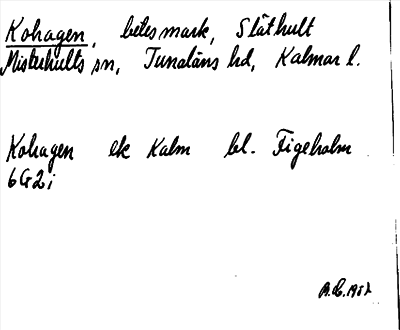 Kohagen, betesmark, Släthult
Misterhults sn, Tunaläns hd, Kalmar l.
Kohagen ek Kalm bl. Figeholm
6G2i